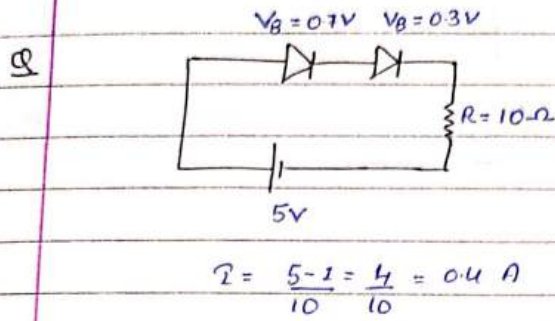 V_B = 0.7V V_B = 0.3V
Q
R = 10Ω
5V
I = 5-1/10 = 4/10 = 0.4 A